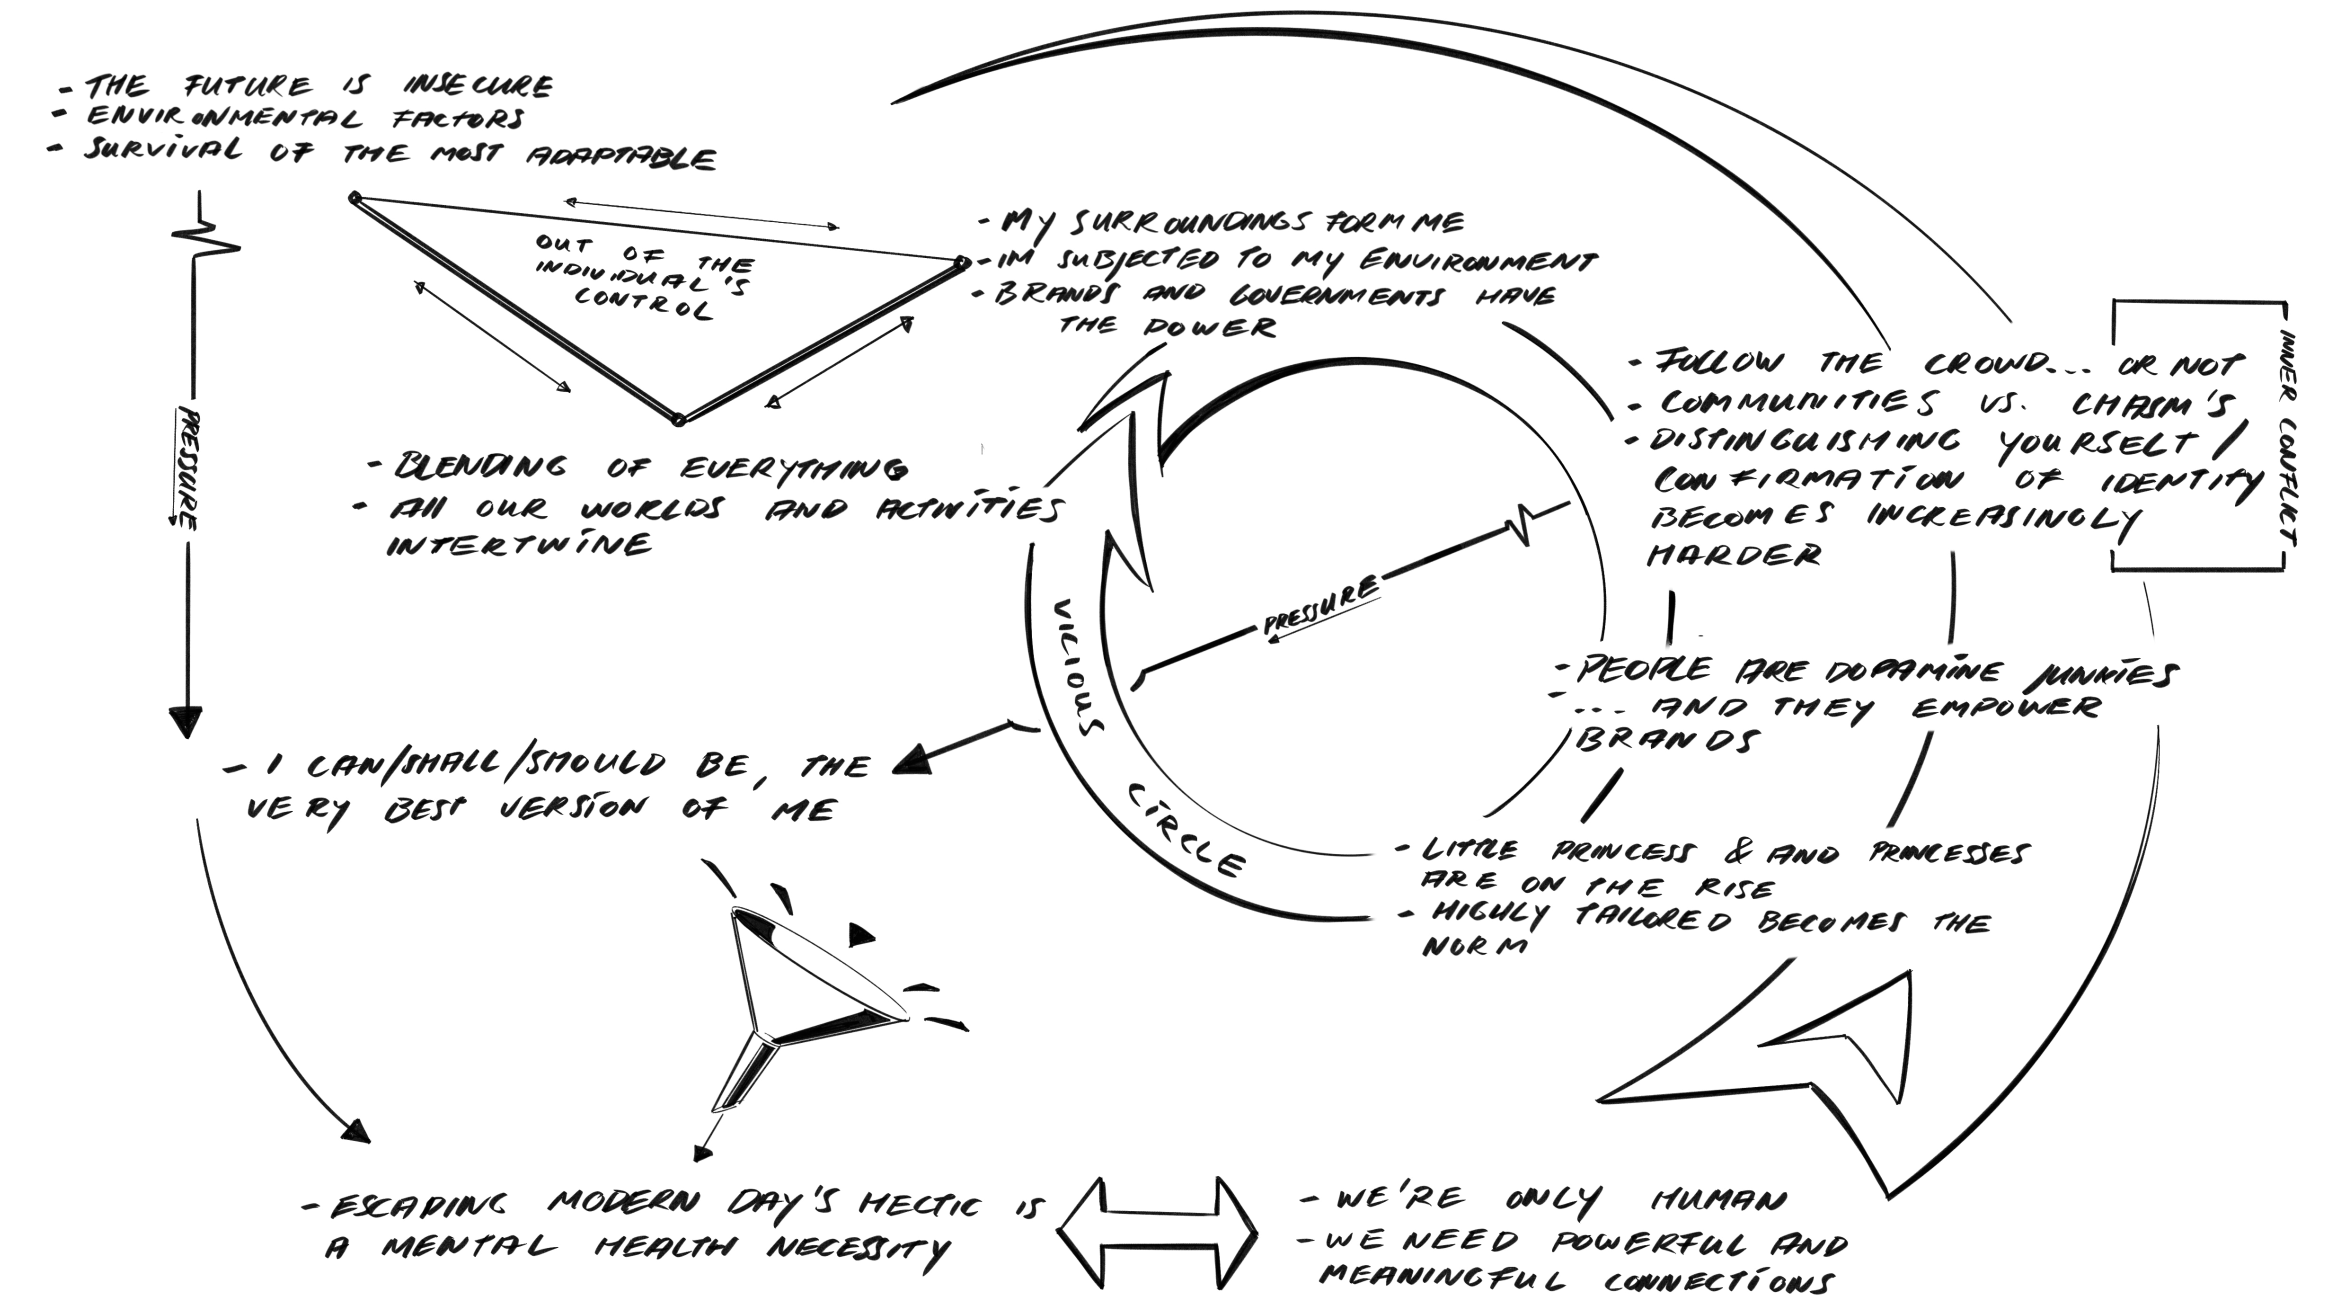 - THE FUTURE IS INSECURE
- ENVIRONMENTAL FACTORS
- SURVIVAL OF THE MOST ADAPTABLE
OUT OF THE
INDIVIDUAL'S
CONTROL
- MY SURROUNDINGS FORM ME
- IM SUBJECTED TO MY ENVIRONMENT
- BRANDS AND GOVERNMENTS HAVE
THE POWER
PRESSURE
- BLENDING OF EVERYTHING
- All OUR WORLDS AND ACTIVITIES
INTERTWINE
- FOLLOW THE CROWD... OR NOT
- COMMUNITIES VS. CHASM'S
- DISTINGUISHING YOURSELF /
CONFIRMATION OF IDENTITY
BECOMES INCREASINGLY
HARDER
INNER CONFLIKT
PRESSURE
VICIOUS CIRCLE
- PEOPLE ARE DOPAMINE JUNKIES
- ... AND THEY EMPOWER
BRANDS
- I CAN/SHALL/SHOULD BE, THE
VERY BEST VERSION OF ME
- LITTLE PRINCESS & AND PRINCESSES
ARE ON THE RISE
- HIGHLY TAILORED BECOMES THE
NORM
- ESCAPING MODERN DAY'S HECTIC IS
A MENTAL HEALTH NECESSITY
- WE'RE ONLY HUMAN
- WE NEED POWERFUL AND
MEANINGFUL CONNECTIONS